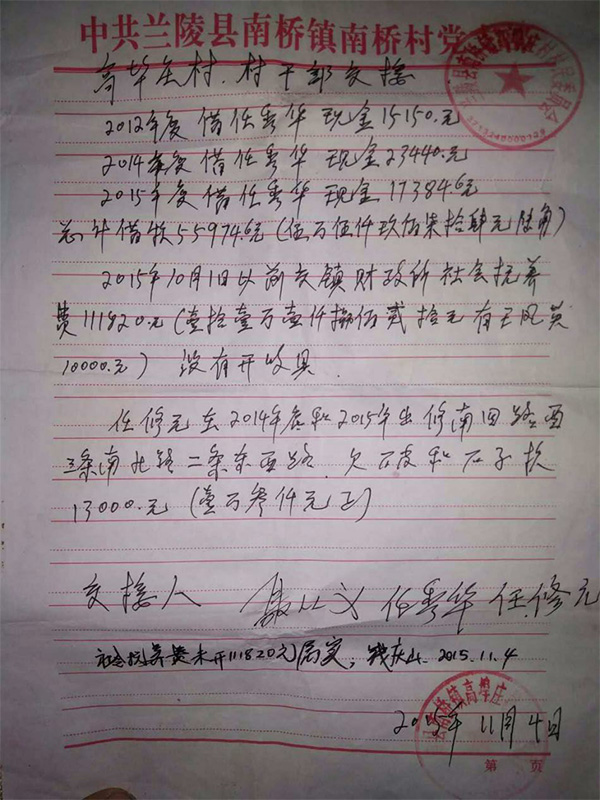 中共兰陵县南桥镇南桥村党
高埠庄村.村干部交接
2012年度借任秀华现金15150.元
2014年度借任秀华现金23440.元
2015年度借任秀华现金17384.6元
总计借款55974.6元(伍万伍仟玖佰柒拾肆元陆角)
2015年10月1日以前交镇财政所社会抚养
费111820.元(壹拾壹万壹仟捌佰贰拾元有王凤英
10000.元) 没有开收具.
任修元在2014年底和2015年出修南田路西
三条南北路二条东西路.欠石皮和石子款
13000.元(壹万叁仟元正)
交接人 任秀华 任修元
社会抚养费未开111820元属实, 庆山. 2015.11.4
2015年11月4日
镇高埠庄
第 页